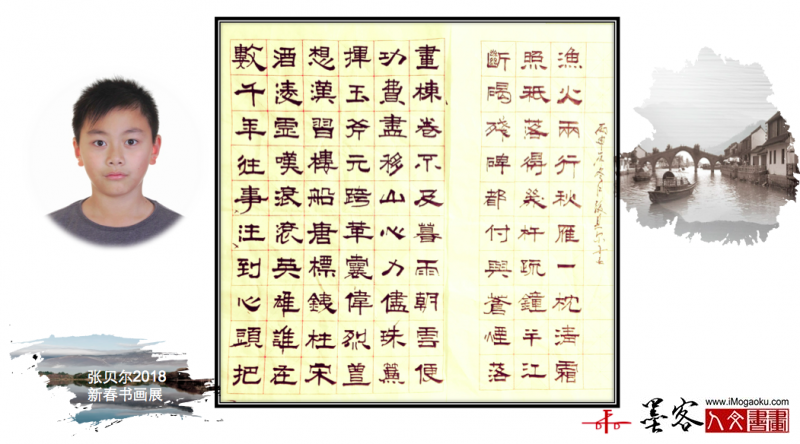 數千年往事注到心頭把
酒淩虛嘆滾滾英雄誰在
想漢習樓船唐標銕柱宋
揮玉斧元跨革囊偉烈豐
功費盡移山心力儘珠簾
畫棟卷不及暮雨朝雲便
斷碣殘碑都付與蒼煙落
照祇落得幾杵疏鐘半江
漁火兩行秋雁一枕清霜
张贝尔2018
新春书画展
墨客
www.iMogaoku.com
人文書畫